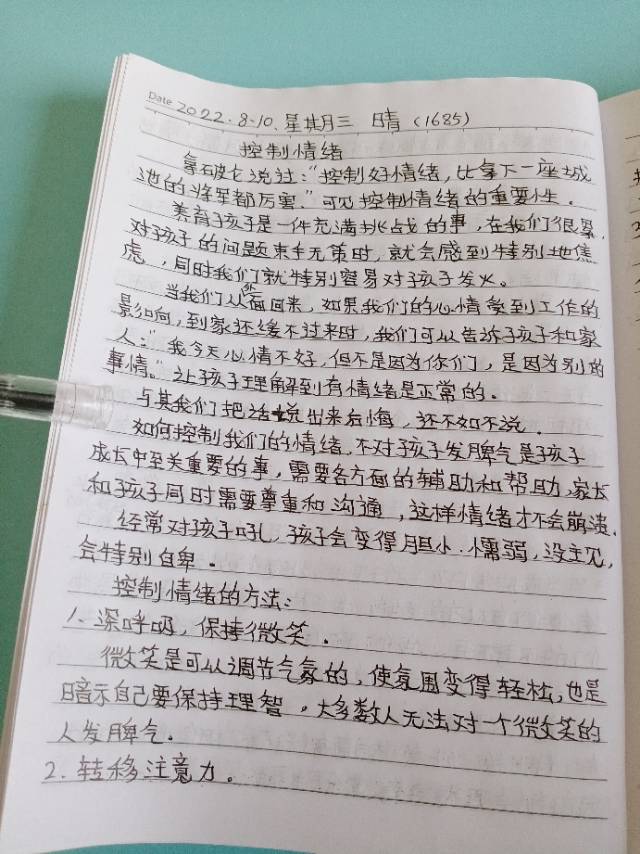 Date 2022.8.10.星期三 晴 (1685)
控制情绪
拿破仑说过:"控制好情绪,比拿下一座城
池的将军都厉害."可见控制情绪的重要性.
养育孩子是一件充满挑战的事,在我们很累,
对孩子的问题束手无策时,就会感到特别地焦
虑,同时我们就特别容易对孩子发火。
当我们从外面回来,如果我们的心情受到工作的
影响,到家还缓不过来时,我们可以告诉孩子和家
人:"我今天心情不好,但不是因为你们,是因为别的
事情。"让孩子理解到有情绪是正常的.
与其我们把话说出来后悔,还不如不说.
如何控制我们的情绪,不对孩子发脾气是孩子
成长中至关重要的事,需要各方面的辅助和帮助,家长
和孩子同时需要尊重和沟通,这样情绪才不会崩溃.
经常对孩子吼,孩子会变得胆小.懦弱,没主见,
会特别自卑.
控制情绪的方法:
1、深呼吸,保持微笑.
微笑是可以调节气氛的,使氛围变得轻松,也是
暗示自己要保持理智,大多数人无法对一个微笑的
人发脾气.
2.转移注意力。